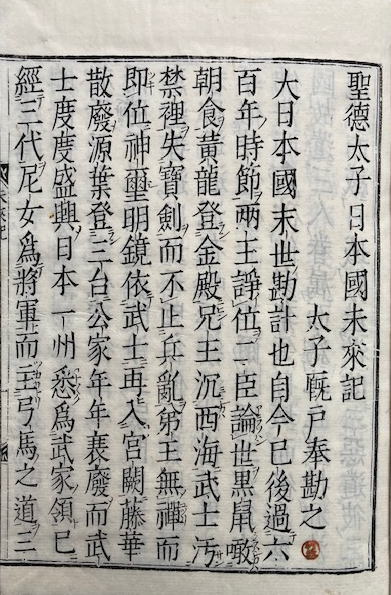 聖德太子日本國未來記
太子厩戸奉勘之
大日本國末世勘計也自今已後過六
百年時節兩主諍位一臣論世黒鼠噉
朝食黄龍登金殿兄主沉西海武士汚
禁裡失寶劍而不止兵亂弟主無禪而
即位神璽明鏡依武士再入宮闕藤華
散廢源葉登三台公家年年衰廢而武
士度度盛興日本一州悉爲武家領已
經三代尼女爲將軍而主弓馬之道三